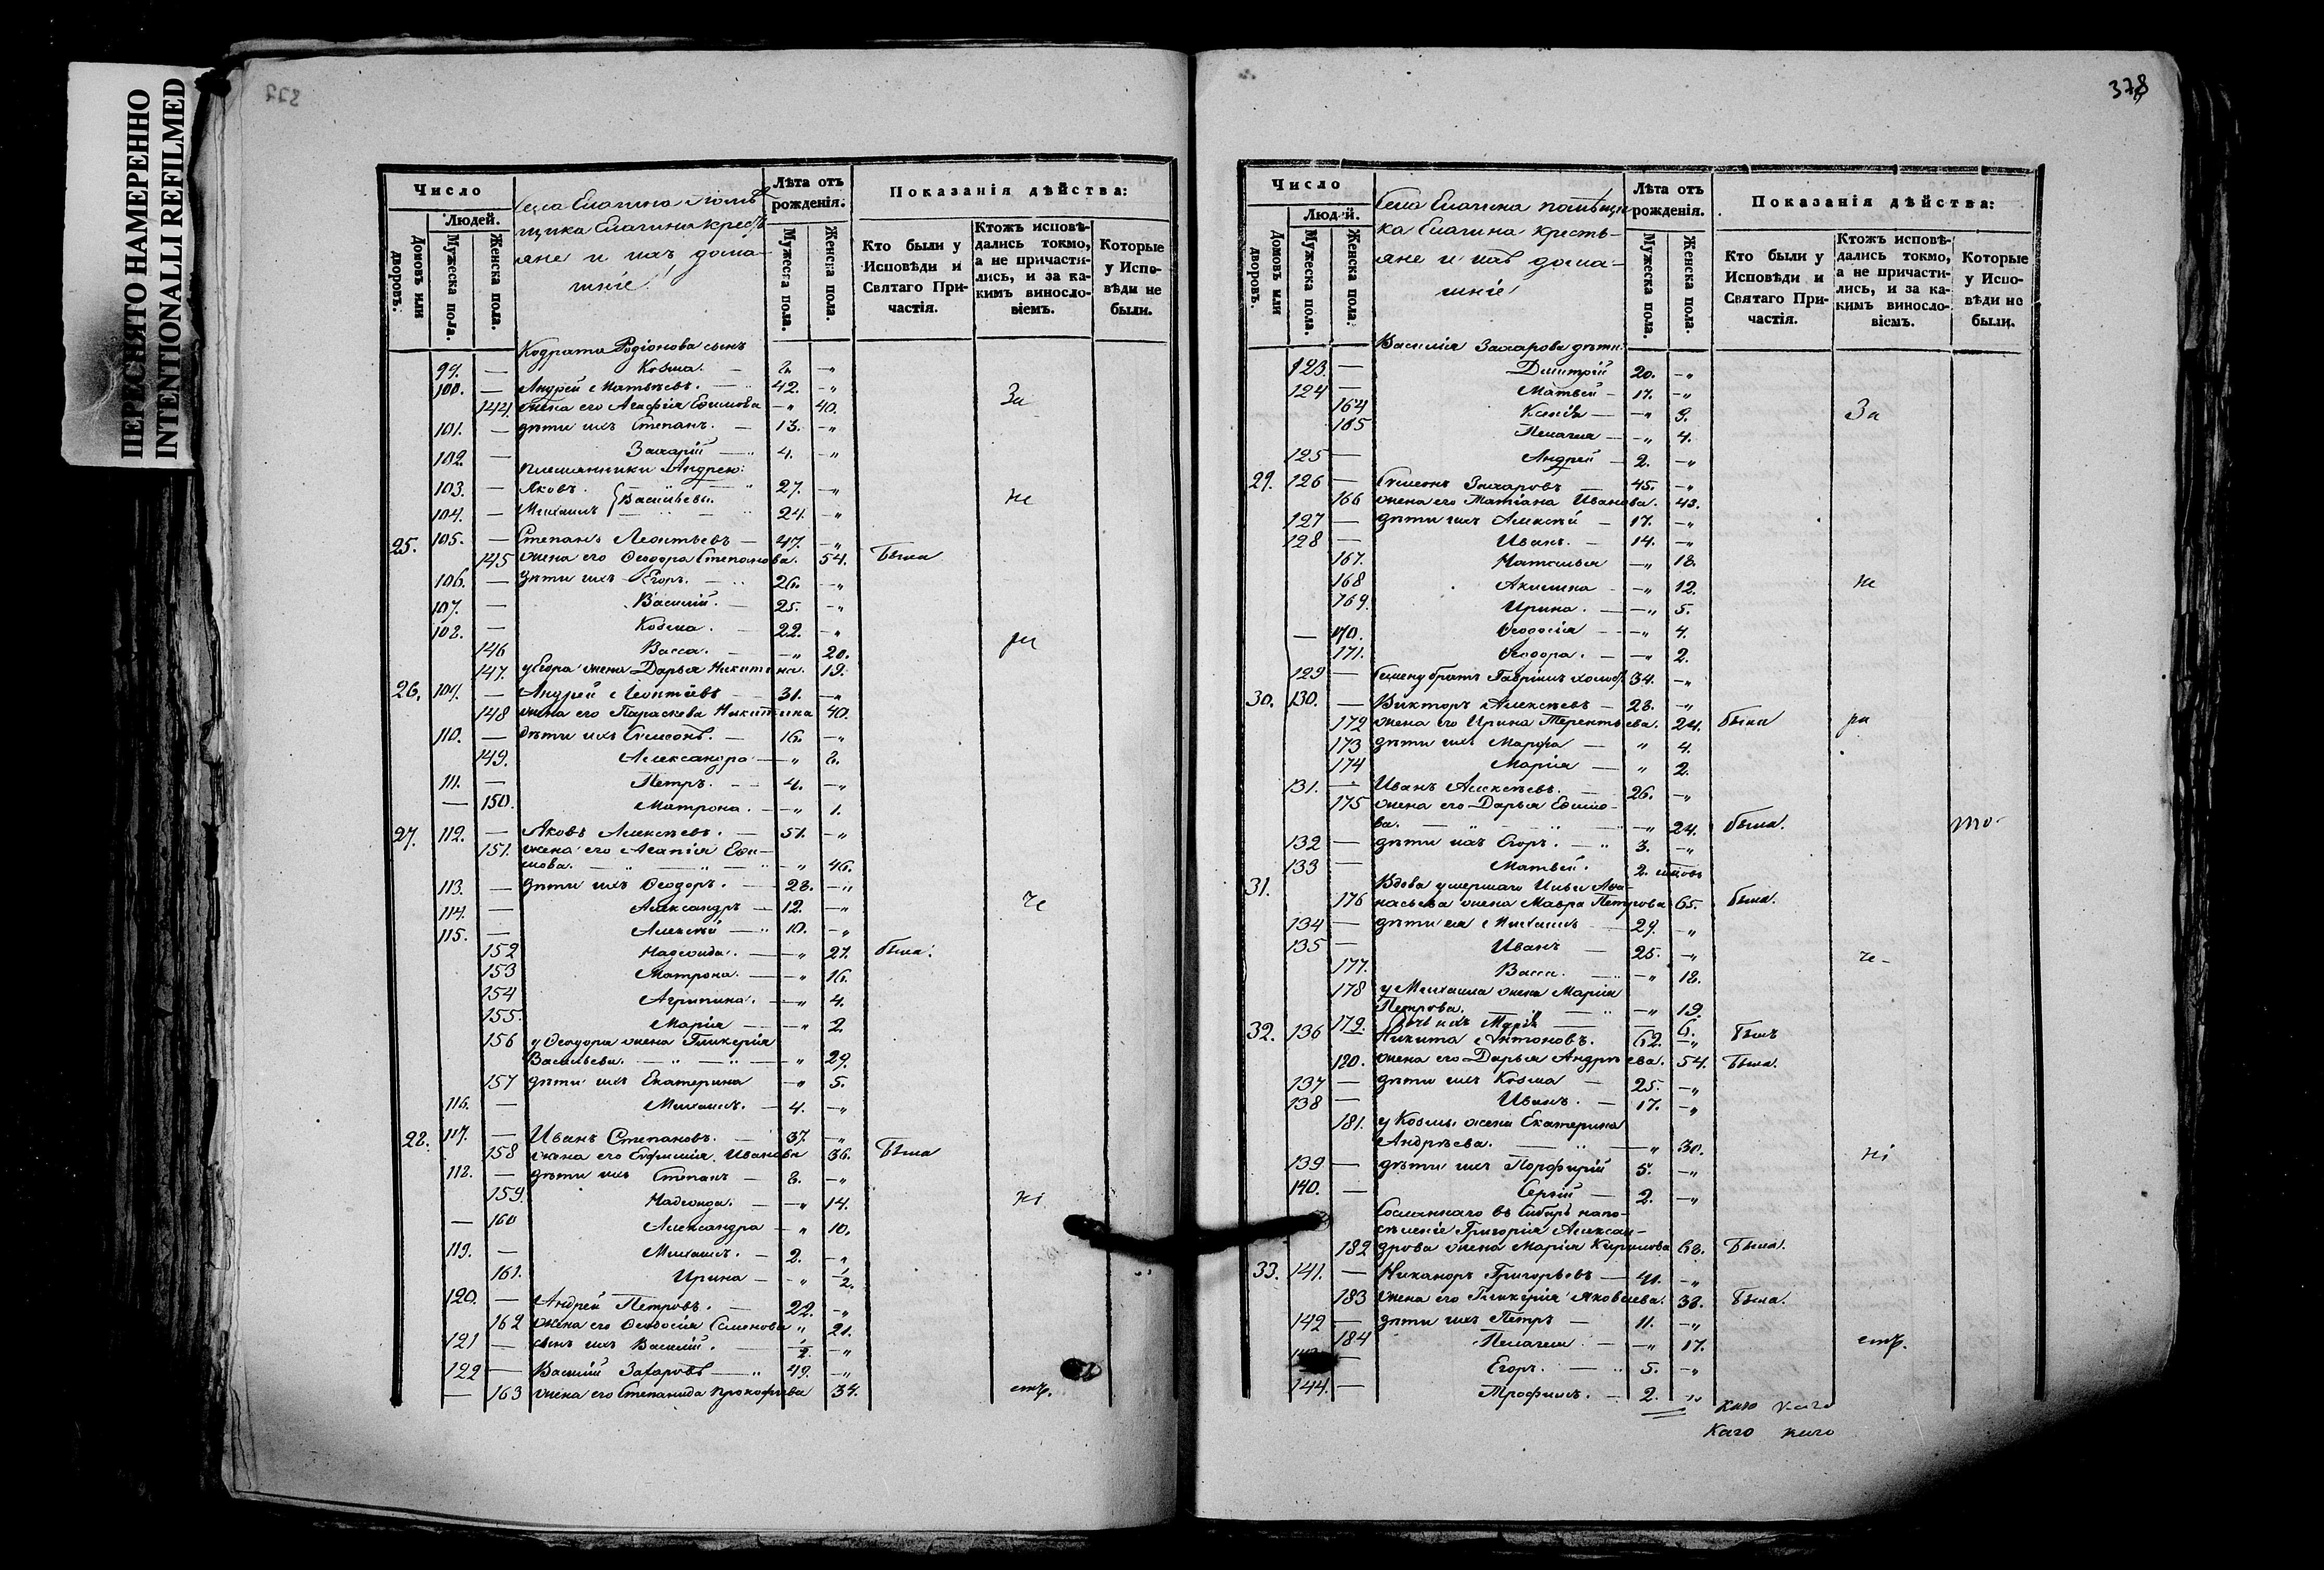 ПЕРЕСНЯТО НАМЕРЕННО
INTENTIONALLI REFILMED
Число
Людей.
Домовъ или дворовъ.
Мужеска пола.
Женска пола.
Села Елагина помѣ-
щика Елагина кресть-
яне и ихъ дома-
шніе
Лѣта отъ рожденія.
Мужеска пола.
Женска пола.
Показанія дѣйства:
Кто были у Исповѣди и Святаго Причастія.
Ктожъ исповѣдались токмо, а не причастились, и за какимъ винословіемъ.
Которые у Исповѣди не были.
Кодрата Родіонова сынъ
99. — Козма. — 2. —„
100. — Андрей Матвѣевъ. — 42. —„
144. жена его Агафія Ефимова —„ 40. За
101. — дѣти ихъ Степанъ. — 13. —„
102. — Захарій — 4. —„
племянники Андрею:
103. — Яковъ. 27. —„
Васильевы. не
104. — Михаилъ 24. —„
25. 105. — Степанъ Леонтьевъ — 47. —„
145 жена его Ѳеодора Степанова. 54. была
106. — дѣти ихъ Егоръ. — 26. —„
107. — Василій. — 25. —„
108. — Козма. — 22. —„
146 Васса. — —„ 20. ра
147. у Егора жена Дарья Никитина. 19.
26. 109. — Андрей Леонтіевъ — 31. —„
148 жена его Параскева Никитина 40.
110. — дѣти ихъ Симеонъ. — 16. —„
149. Александра —„ 8.
111. — Петръ. — 4. —„
— 150. Матрона. — —„ 1.
27. 112. — Яковъ Алексѣевъ. — 51. —„
151. жена его Агапія Ефи-
мова. — —„ 46.
113. — дѣти ихъ Ѳеодоръ. — 28. —„
114. — Александръ — 12. —„ че
115. — Алексѣй — 10. —„
152 Надежда. — —„ 21. была.
153 Матрона. — —„ 16.
154 Агрипина. — —„ 4.
155. Марія — —„ 2
156 у Ѳеодора жена Гликерія
Васильева. — —„ 29.
157 дѣти ихъ Екатерина —„ 5.
116. — Михаилъ. — 4. —„
28. 117. — Иванъ Степановъ. — 37. —„
158 жена его Евфимія Иванова 36. Была
118. — дѣти ихъ Степанъ — 8. —„
159. Надежда. — —„ 14. ні
— 160 Александра —„ 10.
119. — Михаилъ. — 2. —„
161. Ирина — —„ 1/2.
120. — Андрей Петровъ. — 22. —„
162 жена его Ѳеодосія Семенова „ 21.
121 — сынъ ихъ Василій. — 1/2. —„
122 — Василій Захаровъ — 49. —„
— 163 жена его Степанида Прокофьева 34. емъ.
378
Число
Людей.
Домовъ или дворовъ.
Мужеска пола.
Женска пола.
Села Елагина помѣщи-
ка Елагина кресть-
яне и ихъ дома-
шніе
Лѣта отъ рожденія.
Мужеска пола.
Женска пола.
Показанія дѣйства:
Кто были у Исповѣди и Святаго Причастія.
Ктожъ исповѣдались токмо, а не причастились, и за какимъ винословіемъ.
Которые у Исповѣди не были.
Василія Захарова дѣти:
123. — Димитрій 20. —„
124 — Матвей — 17. —„
164 Ксенія — —„ 9. За
165 Пелагея — —„ 4.
125 — Андрей — 2. —„
29. 126 — Симеонъ Захаровъ — 45. —„
166 жена его Татіана Иванова. 43.
127 — дѣти ихъ Алексѣй — 17. —„
128 — Иванъ. — 14. —„
167. Наталья —„ 18.
168 Акилина — —„ 12. не
169. Ирина. — —„ 5.
— 170. Ѳеодосія — —„ 4.
171. Ѳеодора. — —„ 2.
129 — Симену братъ Гавріилъ холос. 34. —„
30. 130. — Викторъ Алексѣевъ — 28. —„
172 жена его Ирина Терентьева. 24. была ра
173 дѣти ихъ Марфа — „ 4.
174 Марія — „ 2.
131. — Иванъ Алексѣевъ. — 26. —„
175 жена его Дарья Ефимо-
ва. — —„ 24. была. то
132 — дѣти ихъ Егоръ. — 3. —„
133 — Матвѣй. 2.
31. Вдова умершаго Ильи Аѳа-
176 насьева жена Мавра Петрова 65. была.
134 — дѣти ея Михаилъ — 29. —„
135 — Иванъ — 25. —„ че-
177. Васса. — —„ 18.
178 у Михаила жена Марія
Петрова. — —„ 19.
179. дочь ихъ Марія — 6.
32. 136 Никита Антоновъ. 62. —„ былъ
180. жена его Дарья Андреева. 54. Была.
137 — дѣти ихъ Козма — 25. —„
138 — Иванъ. — 17. —„
181. у Козмы жена Екатерина
Андрѣева. — —„ 30.
139 — дѣти ихъ Порфирій 5. —„ ні
140. — Сергій — 2. —„
Сосланнаго въ Сибирь напо-
сѣленіе Григорія Алексан-
182 дрова жена Марія Кирилова 68. Была.
33. 141. — Никаноръ Григорьевъ — 41. —„
183 жена его Гликерія Яковлева. 38. Была.
142 — дѣти ихъ Петръ — 11. —„
184 Пелагея — —„ 17. емъ.
— Егоръ. — 5. —„
144. — Трофимъ. — 2. —„